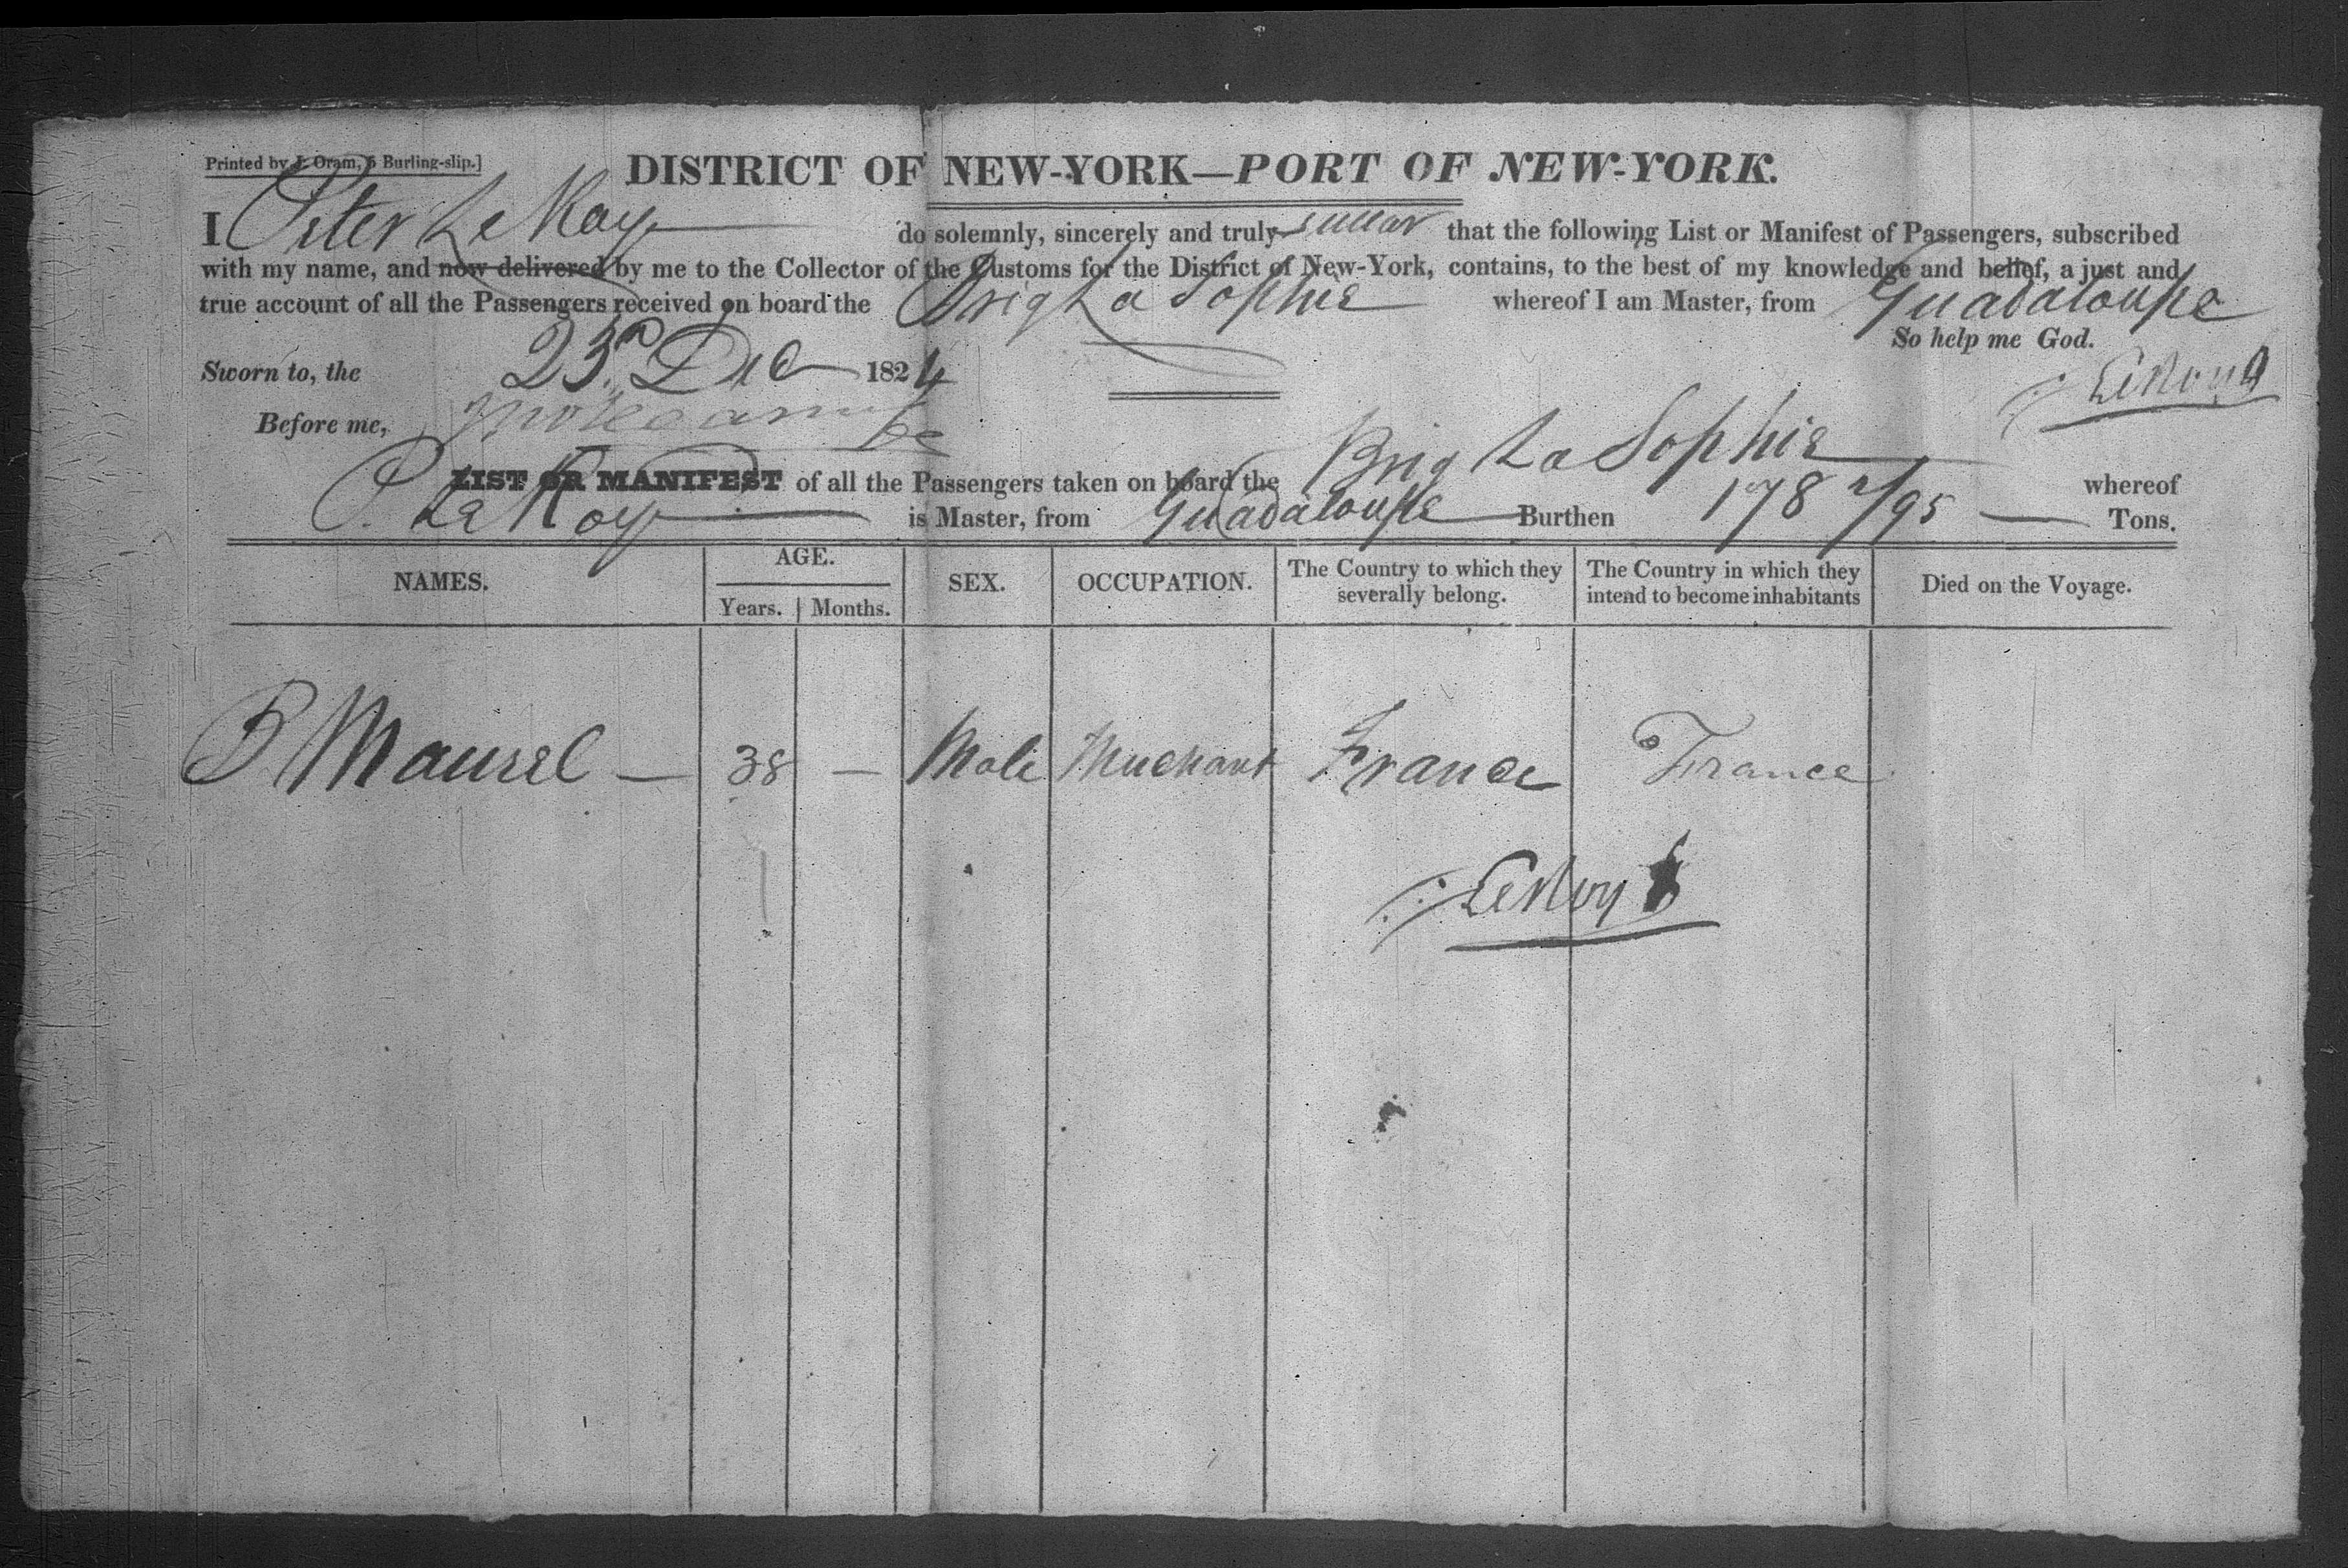 Printed by J. Oram, 5 Burling-slip.]
DISTRICT OF NEW-YORK—PORT OF NEW-YORK.
I Peter Le Roy do solemnly, sincerely and truly swear that the following List or Manifest of Passengers, subscribed
with my name, and now delivered by me to the Collector of the Customs for the District of New-York, contains, to the best of my knowledge and belief, a just and
true account of all the Passengers received on board the Brig La Sophie whereof I am Master, from Guadaloupe
So help me God.
Sworn to, the 23d Dec 1824
LeRoy
Before me,
LIST OR MANIFEST of all the Passengers taken on board the Brig La Sophie whereof
P. Le Roy is Master, from Guadaloupe Burthen 178 2/95 Tons.
NAMES. AGE. SEX. OCCUPATION. The Country to which they severally belong. The Country in which they intend to become inhabitants Died on the Voyage.
Years. Months.
B Maurel — 38 — Male Merchant France France
LeRoy